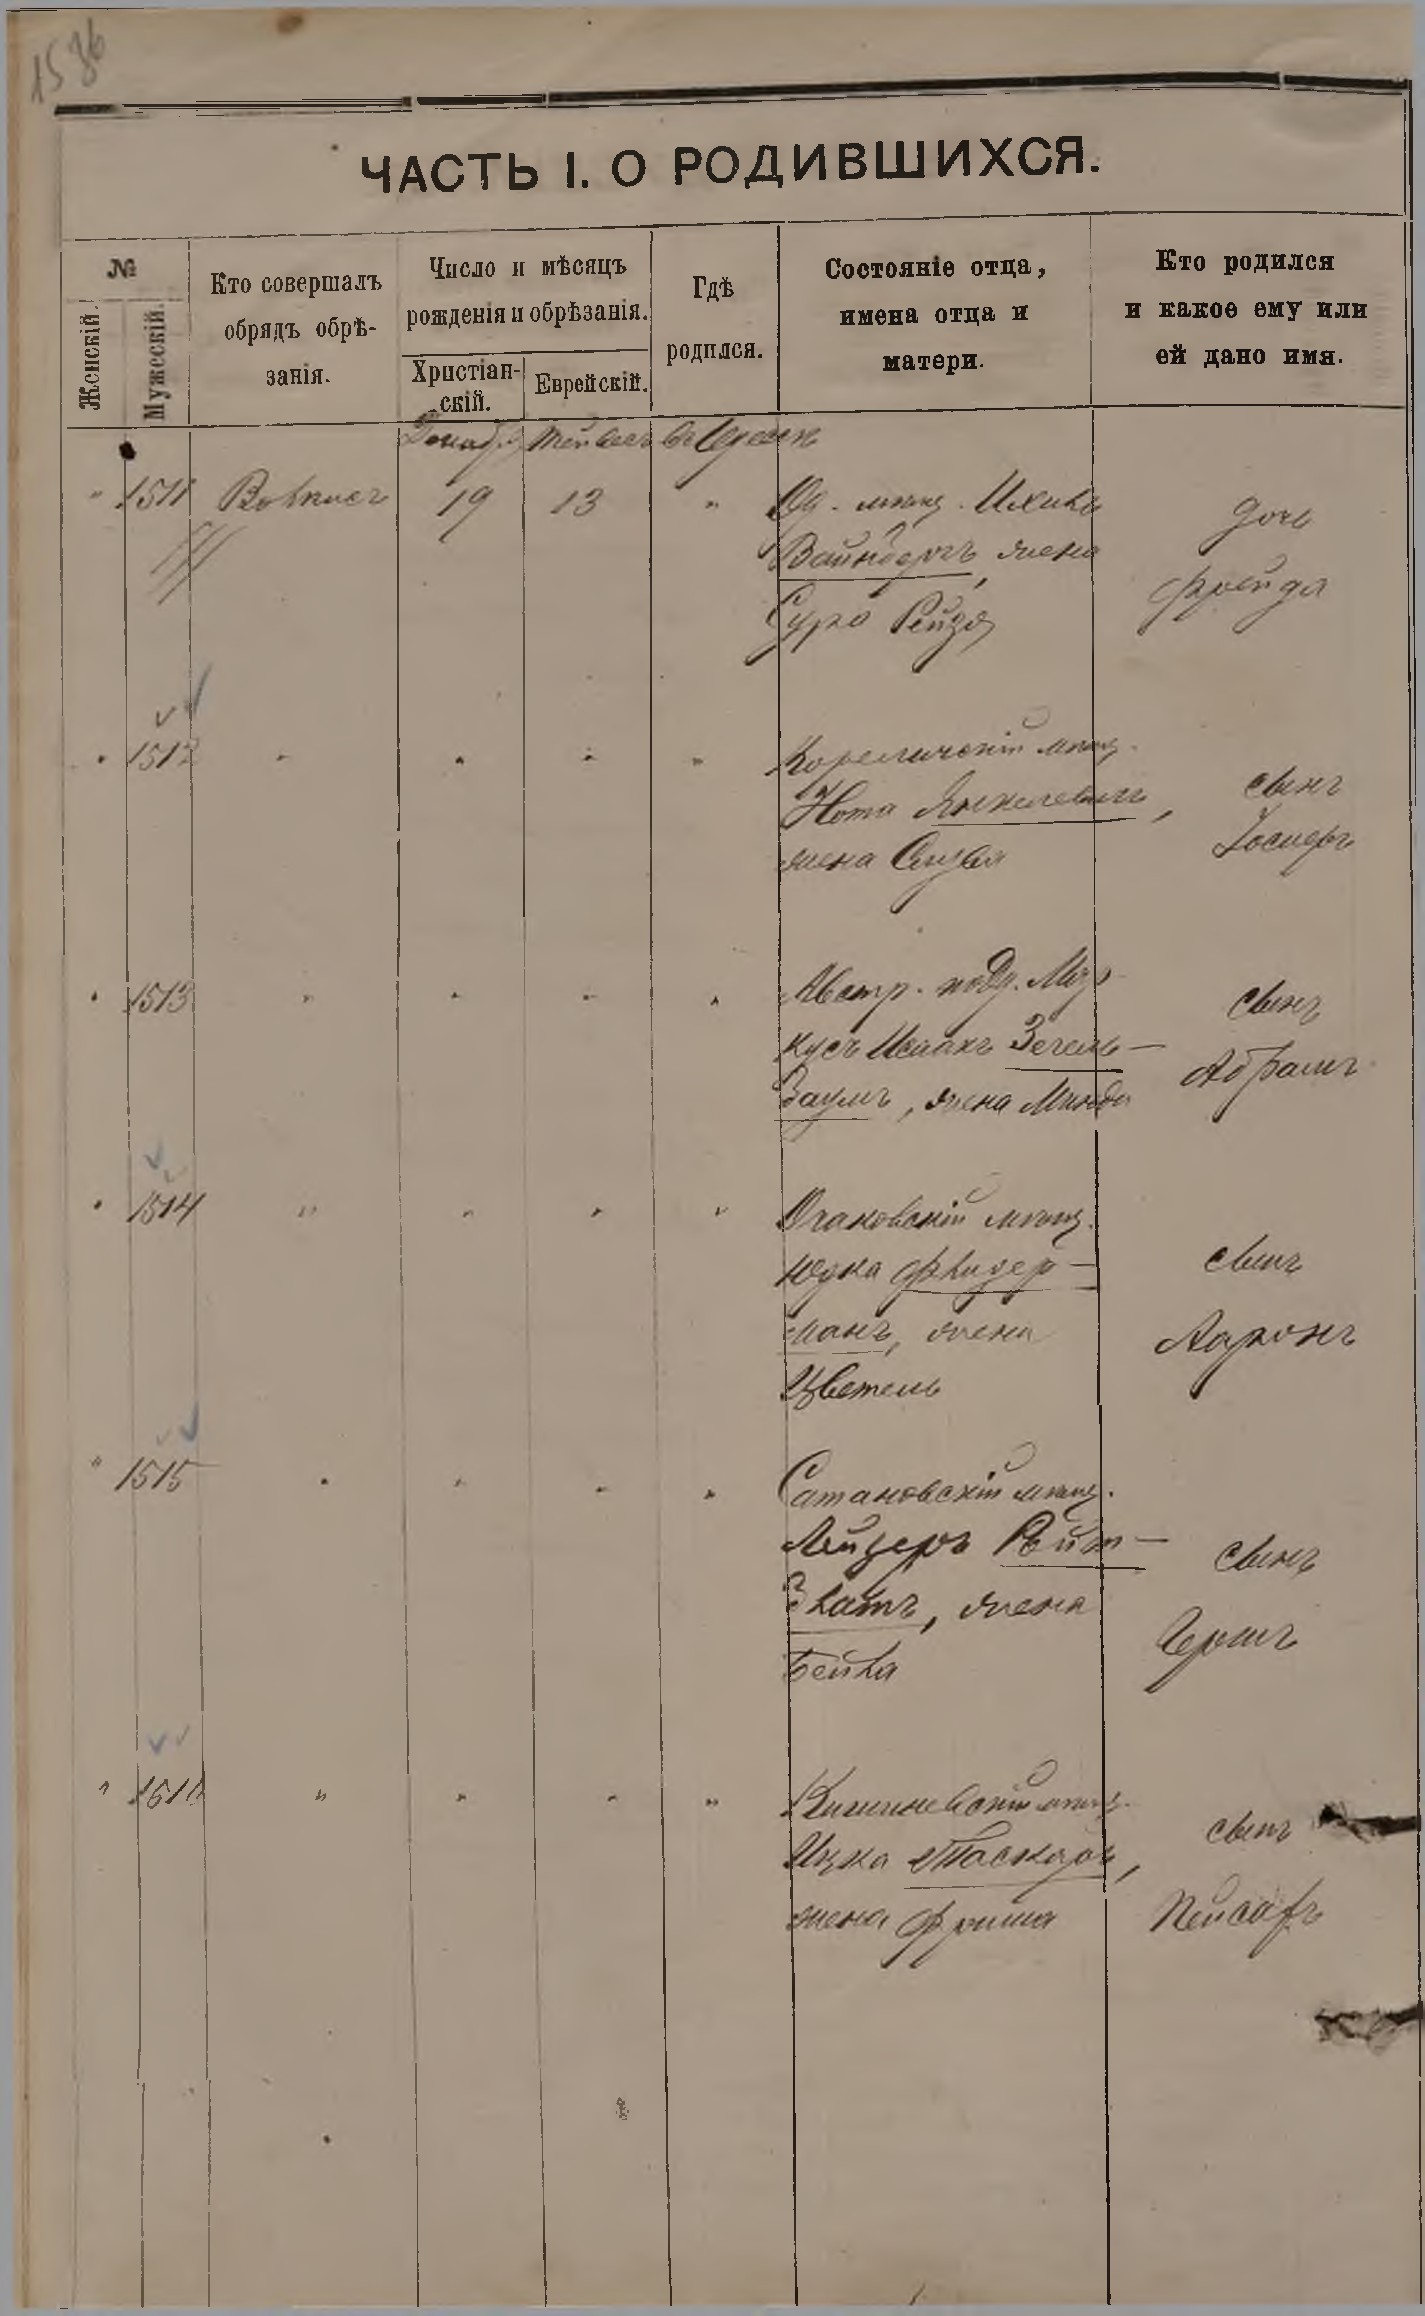 1536
ЧАСТЬ I. О РОДИВШИХСЯ.
№
Женскій.
Мужескій.
Кто совершалъ
обрядъ обрѣ-
занія.
Число и мѣсяцъ
рожденія и обрѣзанія.
Христіан-
скій.
Еврейскій.
Гдѣ
родился.
Состояніе отца,
имена отца и
матери.
Кто родился
и какое ему или
ей дано имя.
Декабр. Тейвесъ въ Одессѣ
" 1511 19 13 " Од. мѣщ. Ицикъ
Вайнбергъ, жена
Сура Рейзя
дочь
Фрейда
" 1512 " " " " Кореличскій мѣщ.
Нота Янкелевичъ,
жена
сынъ
Іосифъ
" 1513 " " " " Австр. подд. Мар-
кусъ Исаакъ Зегель-
Заумъ, жена Минда
сынъ
Абрамъ
" 1514 " " " " Очаковскій мѣщ.
Юдка Флидер-
манъ, жена
Цветель
сынъ
Ааронъ
" 1515 " " " " Сатановскій мѣщ.
Лейзеръ Ройт-
Блатъ, жена
Бейла
сынъ
Герш
" 1516 " " " " Кишиневскій мѣщ.
Ицка Таскаръ,
жена Фрима
сынъ
Пейсахъ